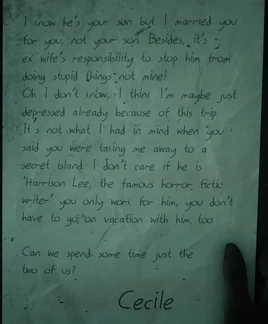 I know he's your son but I married you
for you, not your son. Besides, it's
ex wife's responsibility to stop him from
doing stupid things not mine!
Oh I don't know, I think I'm maybe just
depressed already because of this trip.
It's not what I had in mind when you
said you were taking me away to a
secret island. I don't care if he is
'Harrison Lee, the famous horror fictic
writer' you only work for him, you don't
have to go on vacation with him too.
Can we spend some time just the
two of us?
Cecile